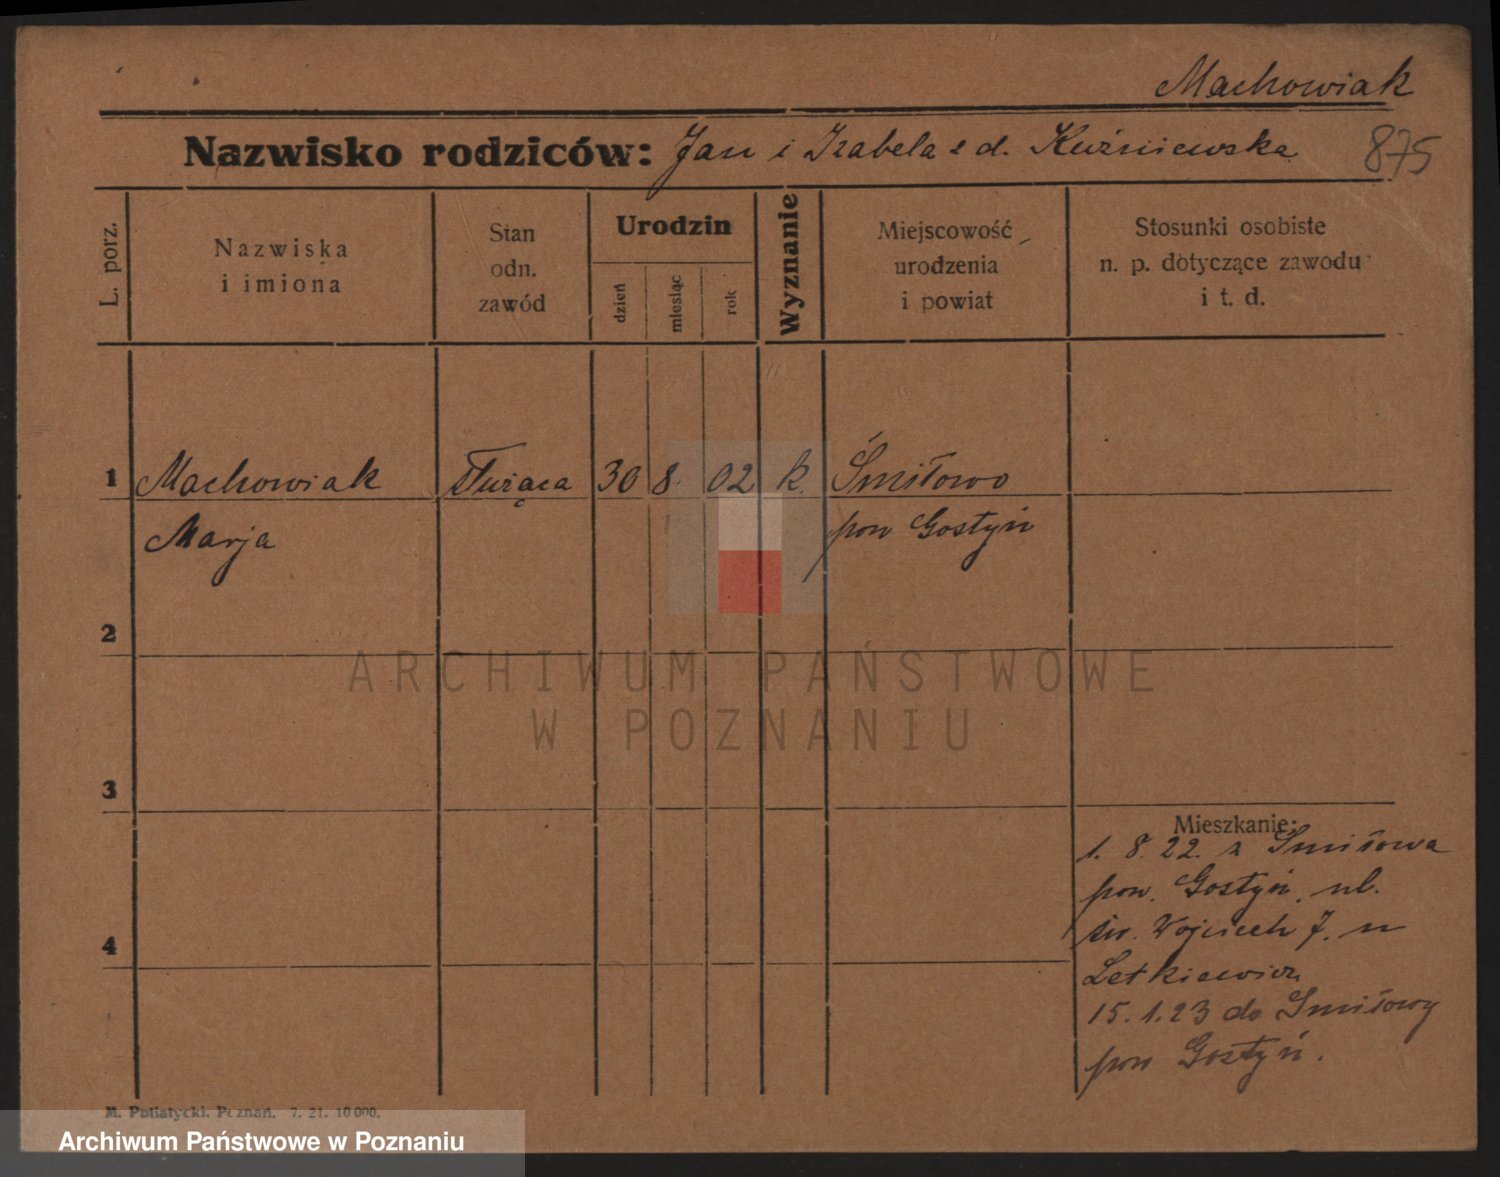 Machowiak
Nazwisko rodziców: Jan i Izabela z d. Kuźniewska
875
L. porz.
Nazwiska
i imiona
Stan
odn.
zawód
Urodzin
dzień
miesiąc
rok
Wyznanie
Miejscowość
urodzenia
i powiat
Stosunki osobiste
n. p. dotyczące zawodu
i t. d.
1 Machowiak Służąca 30 8. 02 k. Śmiłowo
Marja pow Gostyń
2
3
4
ARCHIWUM PAŃSTWOWE
W POZNANIU
Mieszkanie:
1. 8. 22. z Śmiłowa
pow. Gostyń, ul.
św. Wojciech 7. u
Letkiewicz
15. 1. 23 do Śmiłowy
pow Gostyń.
M. Putiatycki. Poznań. 7. 21. 10 000.
Archiwum Państwowe w Poznaniu